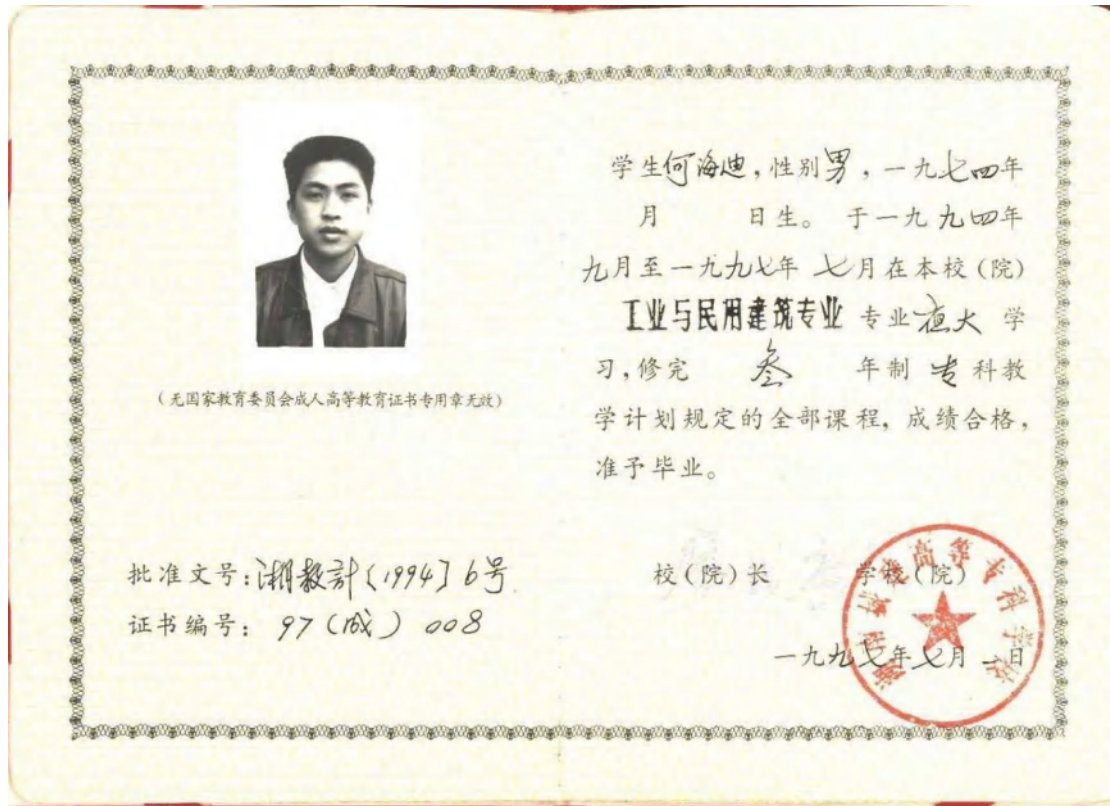 （无国家教育委员会成人高等教育证书专用章无效）
批准文号：湘教計〔1994〕6号
证书编号： 97（成）008
学生何海迪，性别男，一九七四年
月 日生。于一九九四年
九月至一九九七年七月在本校（院）
工业与民用建筑专业 专业夜大 学
习，修完 叁 年制 专 科教
学计划规定的全部课程，成绩合格，
准予毕业。
校（院）长 学校（院）
一九九七年七月 日
高等专科学校